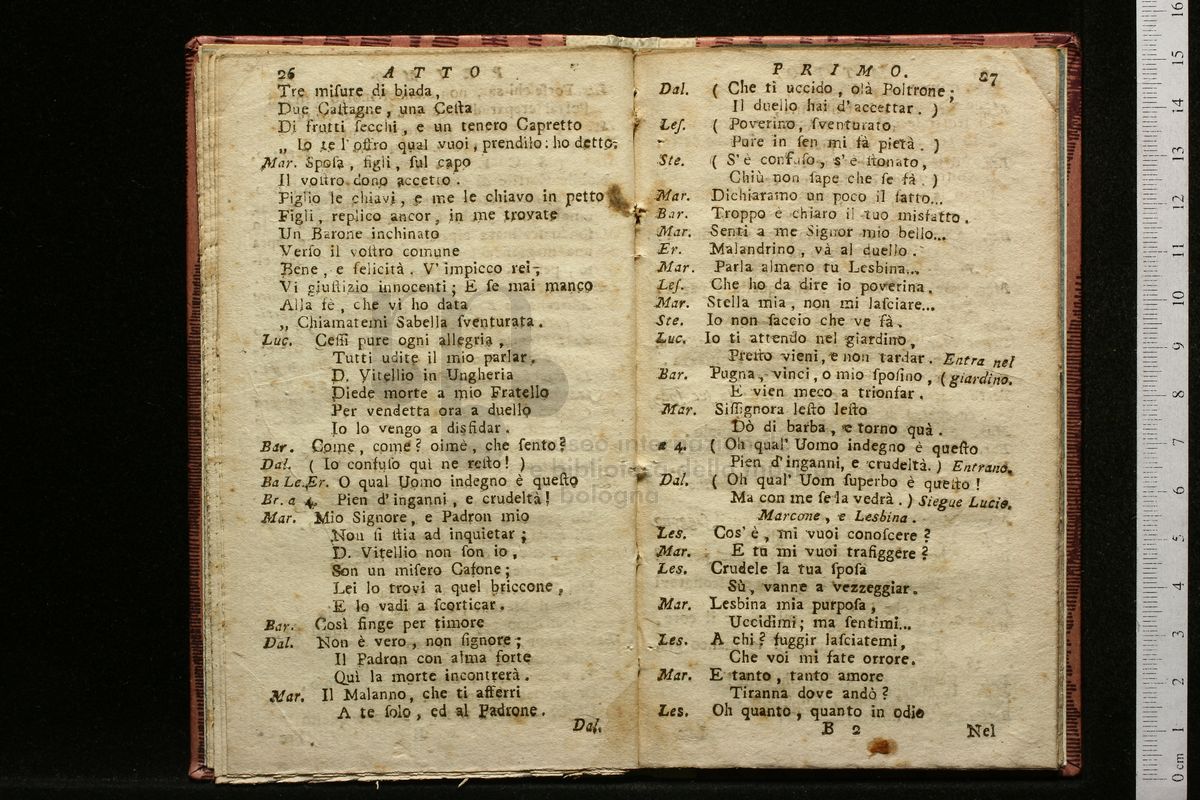 26 ATTO
Tre miſure di biada,
Due Caſtagne, una Ceſta
Di frutti ſecchi, e un tenero Capretto
„ Io te l'offro qual vuoi, prendilo: ho detto.
Mar. Spoſa, figli, ſul capo
Il voſtro dono accetto.
Piglio le chiavi, e me le chiavo in petto
Figli, replico ancor, in me trovate
Un Barone inchinato
Verſo il voſtro comune
Bene, e felicità. V'impicco rei,
Vi giuſtizio innocenti; E ſe mai manco
Alla fè, che vi ho data
„ Chiamatemi Sabella ſventurata.
Luc. Ceſſi pure ogni allegria,
Tutti udite il mio parlar.
D. Vitellio in Ungheria
Diede morte a mio Fratello
Per vendetta ora a duello
Io lo vengo a disfidar.
Bar. Come, come? oimè, che ſento?
Dal. ( Io confuſo quì ne reſto! )
Ba Le.Er. O qual Uomo indegno è queſto
Br. a 4. Pien d'inganni, e crudeltà!
Mar. Mio Signore, e Padron mio
Non ſi ſtia ad inquietar;
D. Vitellio non ſon io,
Son un miſero Cafone;
Lei lo trovi a quel briccone,
E lo vadi a ſcorticar.
Bar. Così finge per timore
Dal. Non è vero, non ſignore;
Il Padron con alma forte
Quì la morte incontrerà.
Mar. Il Malanno, che ti afferri
A te ſolo, ed al Padrone.
Dal.
PRIMO. 27
Dal. ( Che ti uccido, olà Poltrone;
Il duello hai d'accettar. )
Leſ. ( Poverino, ſventurato
Pure in ſen mi fà pietà. )
Ste. ( S'è confuſo, s'è ſtonato,
Chiù non ſape che ſe fà. )
Mar. Dichiaramo un poco il fatto...
Bar. Troppo è chiaro il tuo misfatto.
Mar. Senti a me Signor mio bello...
Er. Malandrino, và al duello.
Mar. Parla almeno tu Lesbina...
Leſ. Che ho da dire io poverina.
Mar. Stella mia, non mi laſciare...
Ste. Io non faccio che ve fà.
Luc. Io ti attendo nel giardino,
Preſto vieni, e non tardar. Entra nel
Bar. Pugna, vinci, o mio ſpoſino, (giardino.
E vien meco a trionfar.
Mar. Siſſignora leſto leſto
Dò di barba, e torno quà.
a 4. ( Oh qual' Uomo indegno è queſto
Pien d'inganni, e crudeltà. ) Entrano.
Dal. ( Oh qual' Uom ſuperbo è queſto!
Ma con me ſe la vedrà. ) Siegue Lucio.
Marcone, e Lesbina.
Les. Cos'è, mi vuoi conoſcere?
Mar. E tu mi vuoi trafiggere?
Les. Crudele la tua ſpoſa
Sù, vanne a vezzeggiar.
Mar. Lesbina mia purpoſa,
Uccidimi; ma ſentimi...
Les. A chi? fuggir laſciatemi,
Che voi mi fate orrore.
Mar. E tanto, tanto amore
Tiranna dove andò?
Les. Oh quanto, quanto in odio
B 2 Nel